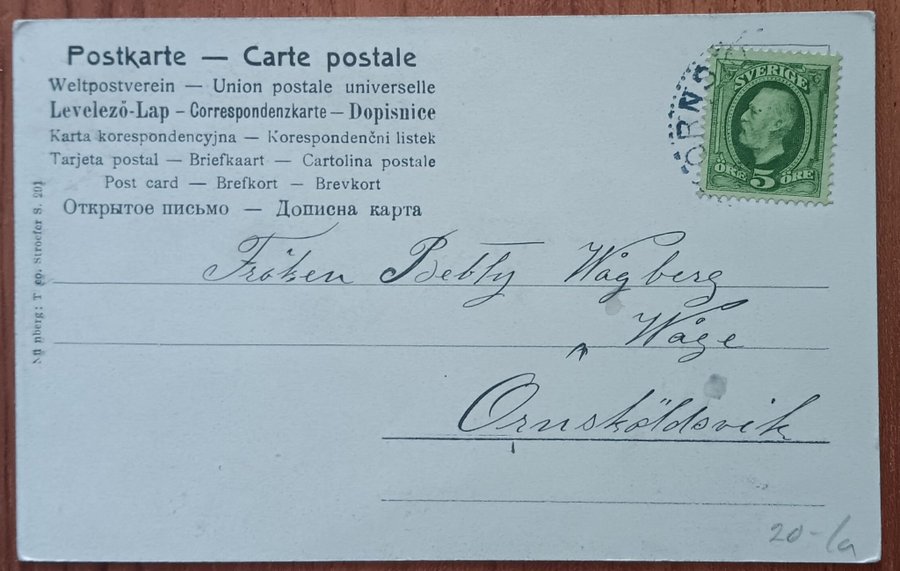 Postkarte — Carte postale
Weltpostverein — Union postale universelle
Levelező-Lap – Correspondenzkarte – Dopisnice
Karta korespondencyjna — Korespondenční listek
Tarjeta postal — Briefkaart — Cartolina postale
Post card — Brefkort — Brevkort
Открытое письмо — Дописна карта
SVERIGE
ÖRE 5 ÖRE
ÖRNS
Fröken Betty Wågberg
Wåge
Ornsköldsvik
Stroefer S. 201
20-